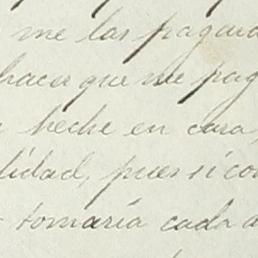 me las pagara
hacer que me pag
heche en cara,
lidad, pues si con
tomaría cada